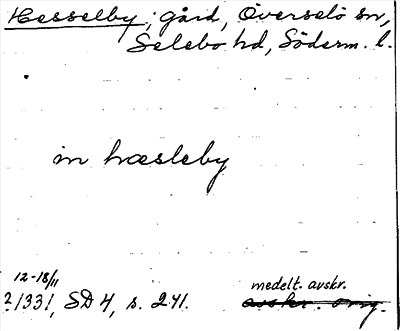 Hesselby, gård, Överselö sn,
Selebo hd, Söderm. l.
in hæsleby
12-18/11
2/331, SD 4, s. 241.
medelt. avskr.
avskr. orig.